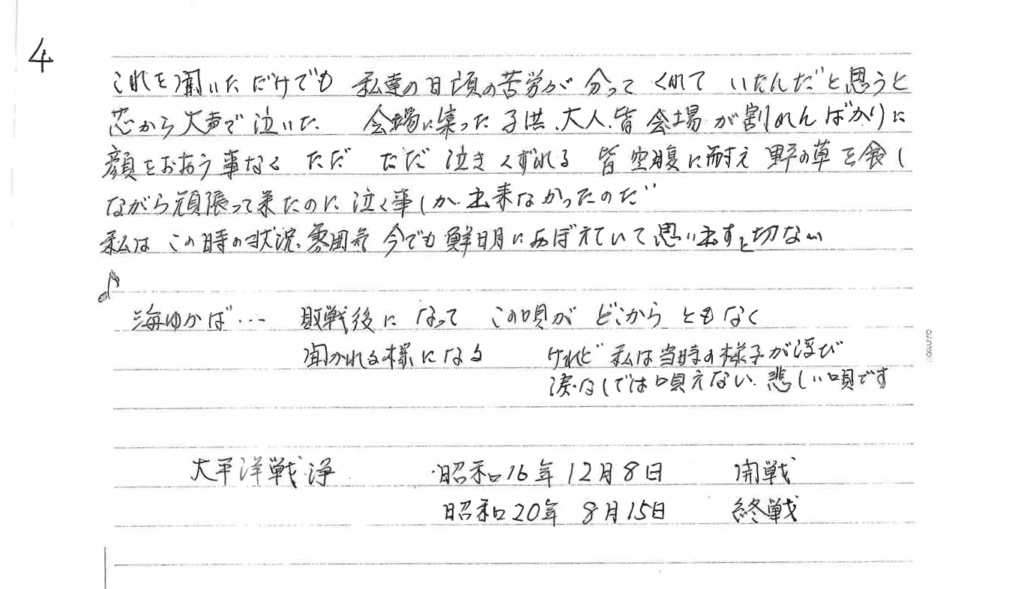 4
これを聞いただけでも 私達の日頃の苦労が 分って くれて いたんだと思うと
芯から大声で泣いた 会場に集った子供、大人、皆 会場が割れんばかりに
顔をおおう事なく ただ ただ 泣きくずれる 皆空腹に耐え 野の草を食し
ながら頑張って来たのに 泣く事しか出来なかったのだ
私は この時の状況、雰囲気 今でも鮮明におぼえていて思い出すと切ない
♪
海ゆかば… 敗戦後に なって この唄が どこから ともなく
聞かれる様になる けれど 私は当時の様子が浮び
涙なしでは唄えない 悲しい唄です
大平洋戦浄 昭和16年12月8日 開戦
昭和20年 8月15日 終戦